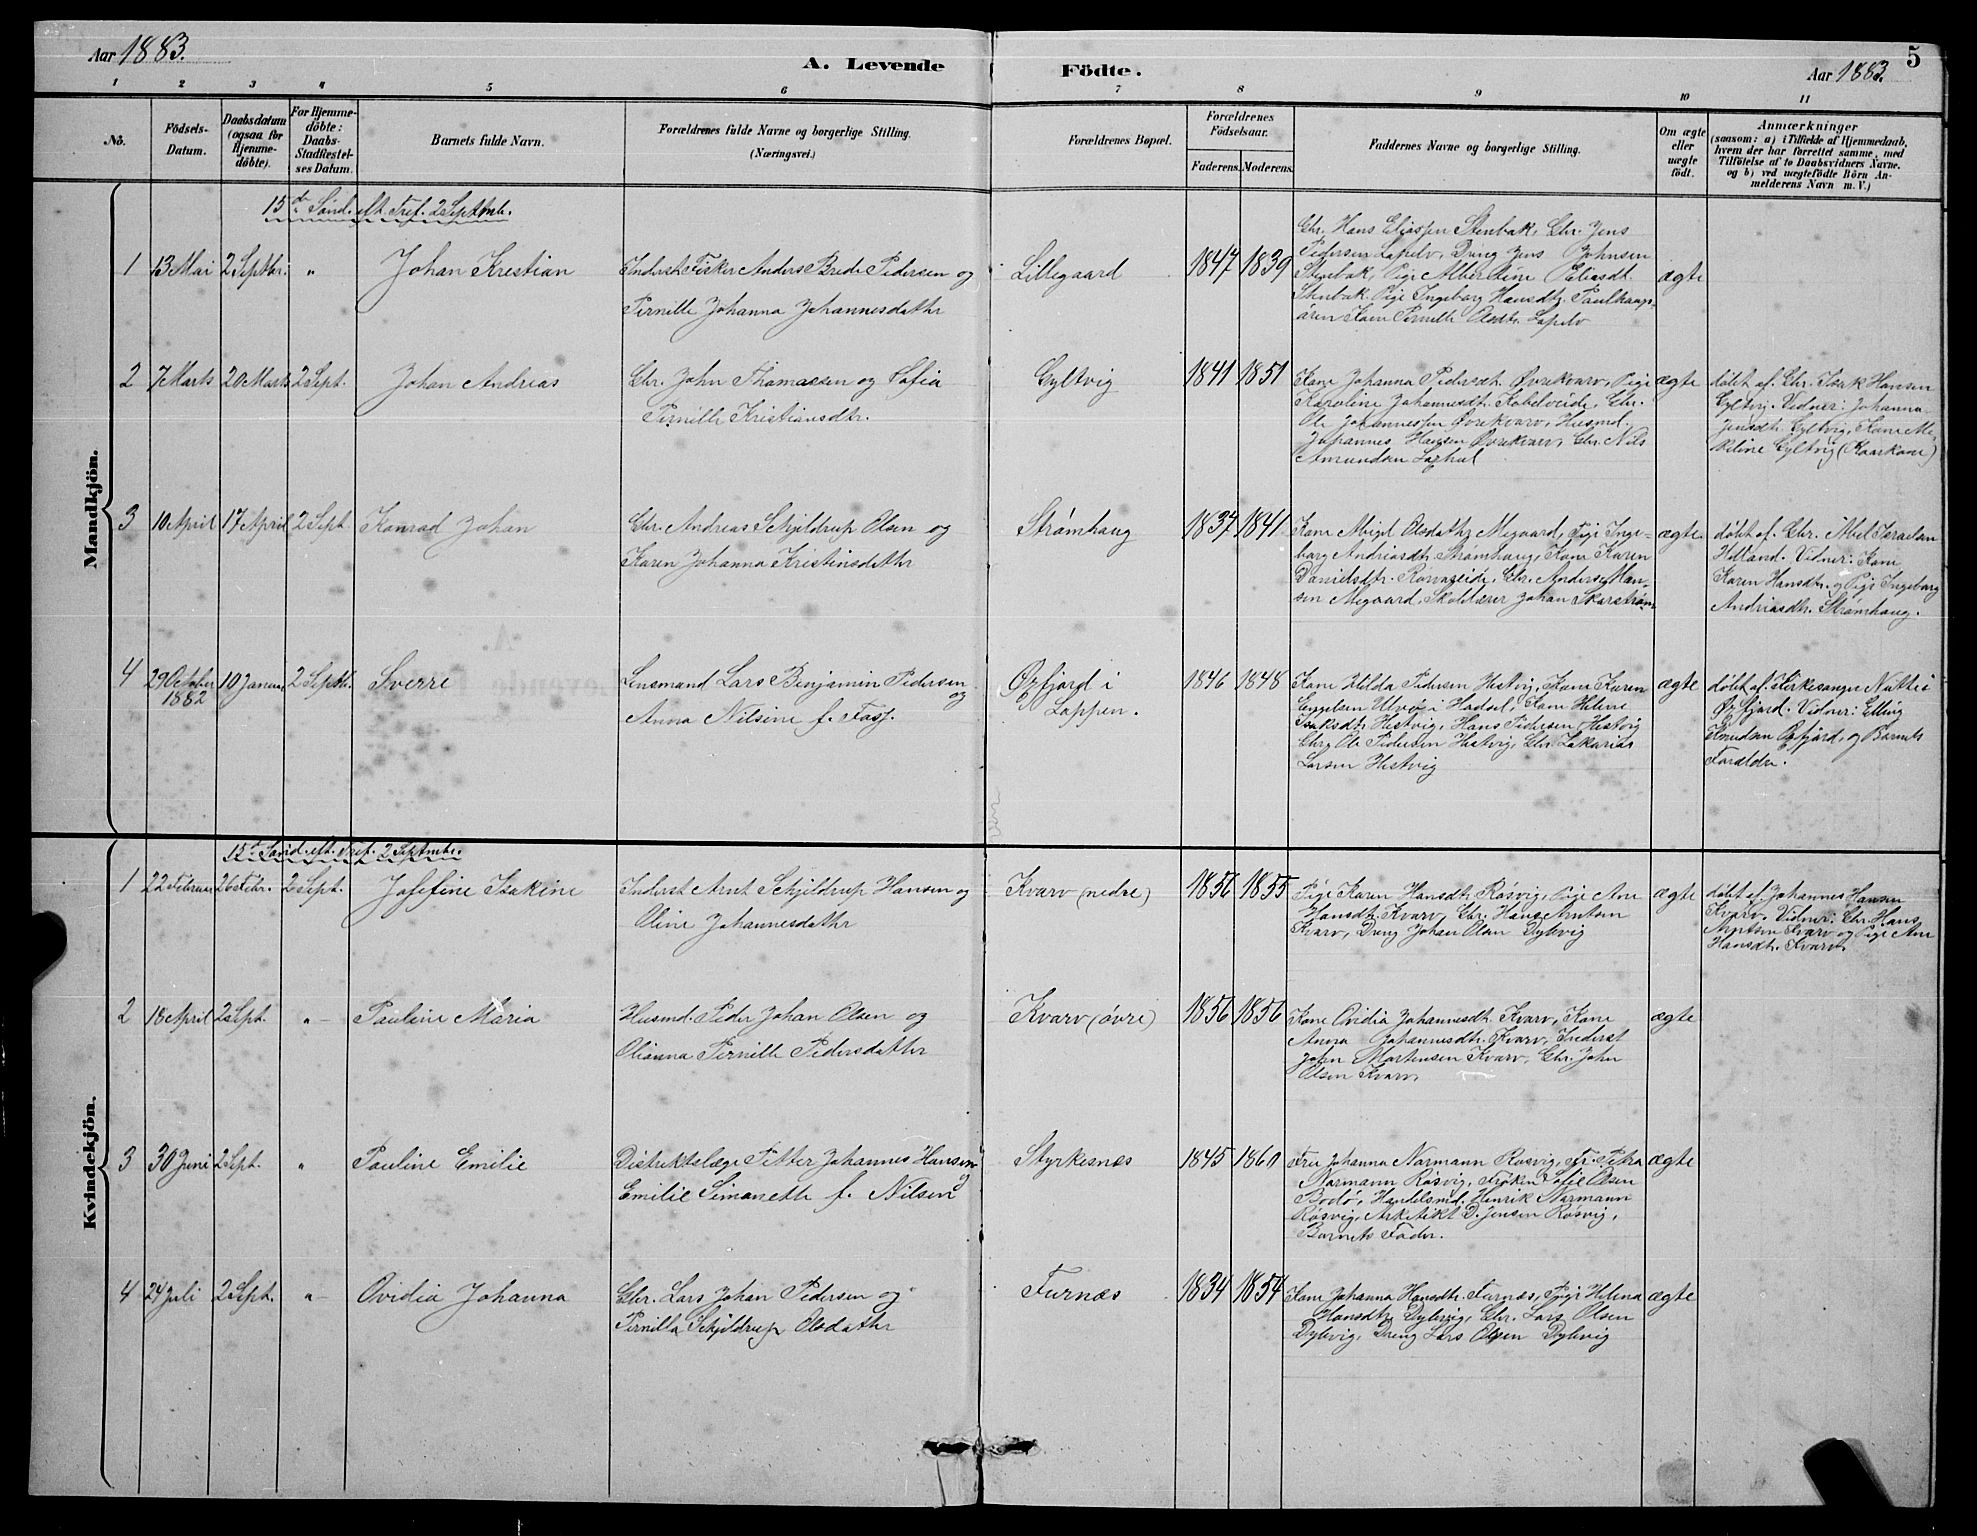 Aar 1883.
A. Levende Födte.
Aar 1883.
5
1 2 3 4 5 6 7 8 9 10 11
No.
Födsels-Datum.
Daabsdatum (ogsaa for Hjemme-döbte).
For Hjemme-döbte: Daabs-Stadfæstel-ses Datum.
Barnets fulde Navn.
Forældrenes fulde Navne og borgerlige Stilling. (Næringsvei.)
Forældrenes Bopæl.
Forældrenes Födselsaar.
Faderens. Moderens.
Faddernes Navne og borgerlige Stilling.
Om ægte eller uægte födt.
Anmærkninger
(saasom: a) i Tilfælde af Hjemmedaab,
hvem der har forrettet samme, med
Tilföielse af to Daabsvidners Navne.
og b) ved uægtefödte Börn An-
melderens Navn m. V.)
Mandkjön.
15de Sönd. eft. Tref. 2 Septemb.
1 13 Mai 2 Septbr. " Johan Kristian
Inderst Fisker Anders Brede Pedersen og
Pernille Johanna Johannesdatter
Lillegaard 1847 1839
Gbr. Hans Eliassen Stenbak, Gbr. Jens
Pedersen Lapelv, Dreng Jens Johnsen
Stenbak, Pige Albertine Eliasdt.
Stenbak. Pige Ingeborg Hansdtr. Paulhaug-
ören Kone Pernille Olsdtr. Lapelv
ægte
2 7 Marts 20 Marts 2 Sept. Johan Andreas
Gbr. John Thomassen og Sofia
Pernille Kristiansdtr.
Gyltvig 1841 1851
Kone Johanna Pedersdt. Øvrekvarv, Pige
Karoline Johannesdt. Kobelveide, Gbr.
Ole Johannessen Øvrekvarv, Husmd.
Johannes Hansen Øvrekvarv, Gbr. Nils
Amundsen Laxhul
ægte
döbt af. Gbr. Isak Hansen
Gyltvig. Vidner: Johanna
Jensdtr. Gyltvig, Kone Me-
keline Gyltvig (Kaarkone)
3 10 April 17 April 2 Sept Konrad Johan
Gbr. Andreas Schjeldrup Olsen og
Karen Johanna Kristinsdatter
Strømhaug 1837 1841
Kone Abigel Olsdatter Megaard, Pige Inge-
borg Andreasdt. Strømhaug, Kone Karen
Danielsdtr. Rørvaseide, Gbr. Anders Han-
sen Megaard, Skolelærer Johan Skarstrøm
ægte
döbt af. Gbr. Abel Israelsen
Helland. Vidner: Kone
Karen Hansdtr. og Pige Ingeborg
Andreasdtr. Strømhaug.
4 29 October 1882 10 Januar 2 Septbr. Sverre
Lensmand Lars Benjamin Pedersen
og
Anna Nilsine f. Fasf.
Øxfjord i
Loppen.
1846 1848
Kone Hilda Pedersen Hestvig, Kone Karen
Engelsen Ulvø i Hadsel, Kone Helene
Isaksdtr. Hestvig, Hans Pedersen Hestvig
Gbr. Ole Pedersen Hestvig, Gbr. Zakarias
Larsen Hestvig
ægte
döbt af. Kirkesanger i
Øxfjord. Vidner: Elling
Øxfjord, og Barnets
Forældre.
Kvindekjön.
15de Sönd. eft. Tref. 2 Septembr.
1 22 Februar 26 Febr. 2 Sept. Josefine Isakine
Inderst Arnt Schjeldrup Hansen og
Oline Johannesdatter
Kvarv (nedre) 1856 1855
Pige Karen Hansdt. Røsvig, Pige Ane
Hansdt. Kvarv, Gbr. Hans Arntsen
Kvarv, Dreng Johan Olsen Dybvig
ægte
döbt af Johannes Hansen
Kvarv. Vidner: Gbr. Hans
Arntsen Kvarv og Pige Ane
Hansdt. Kvarv.
2 18 April 2 Sept. " Pauline Maria
Husmd. Peder Johan Olsen og
Olianna Pernille Pedersdatter
Kvarv (øvre) 1856 1856
Kone Ovidia Johannesdt. Kvarv, Kone
Anna Johannesdtr. Kvarv, Inderst
John Mortensen Kvarv, Gbr. John
Olsen Kvarv.
ægte
3 30 Juni 2 Sept. " Pauline Emilie
Distriktslæge Petter Johannes Hansen
og
Emilie Simonette f. Nilsen
Styrkesnæs 1845 1860
Fru Johanna Normann Røsvig, Fr. Petra
Normann Røsvig, Frøken Sofie Olsen
Bodø, Handelsmd. Henrik Normann
Røsvig, Arkitekt D. Jensen Røsvig,
Barnets Fader.
ægte
4 24 Juli 2 Sept. " Ovidia Johanna
Gbr. Lars Johan Pedersen og
Pernilla Schjeldrup Olsdatter
Furnæs 1834 1854
Kone Johanna Hansdtr. Furnæs, Pige Helena
Hansdtr. Dybvig, Gbr. Lars Olsen
Dybvig, Dreng Lars Olsen Dybvig
ægte